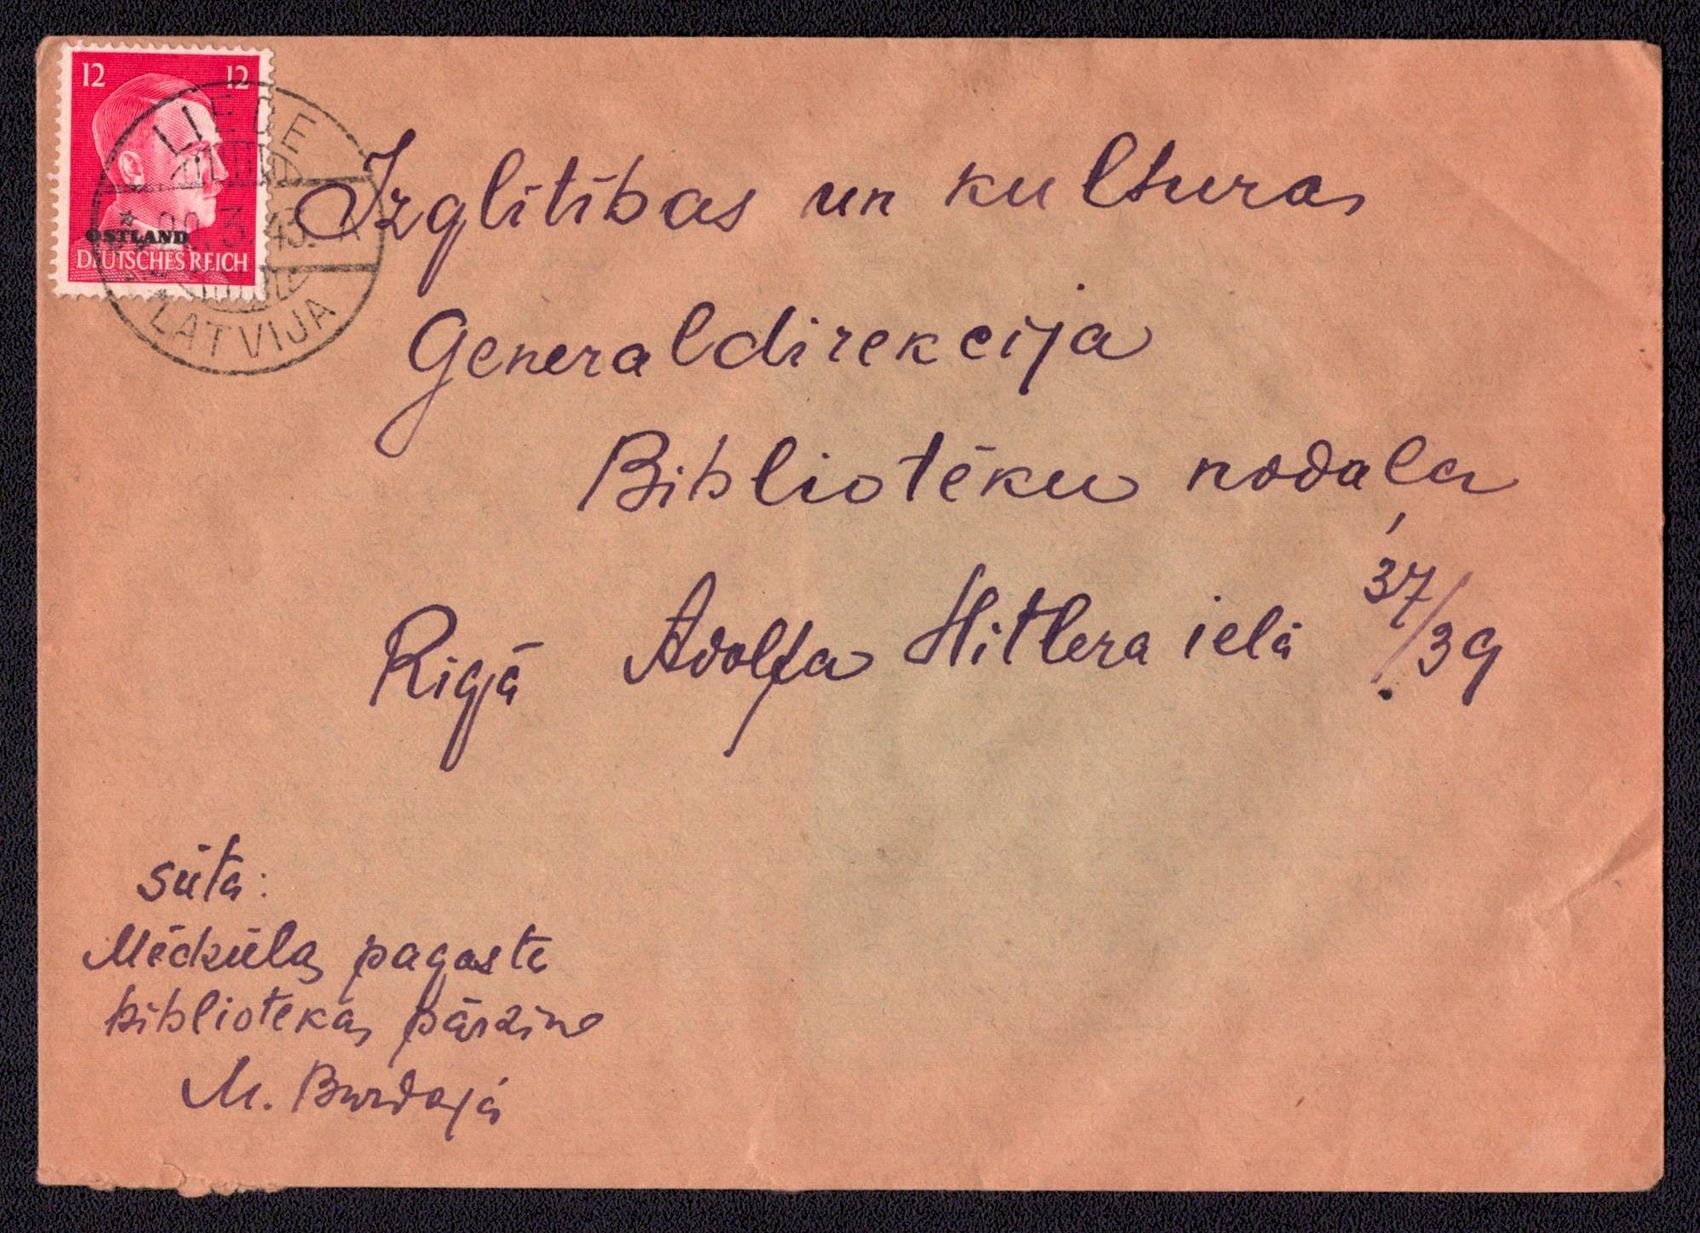 12 12
OSTLAND
DEUTSCHES REICH
LIEDE
3. 43.
LATVIJA
Izglītības un kulturas
Generaldirekcija
Bibliotēku nodaļa
Rigā Adolfa Hitlera ielā 37/39
sūta:
Mēdzūlas pagasta
bibliotēkas pārzine
M. Burdajā